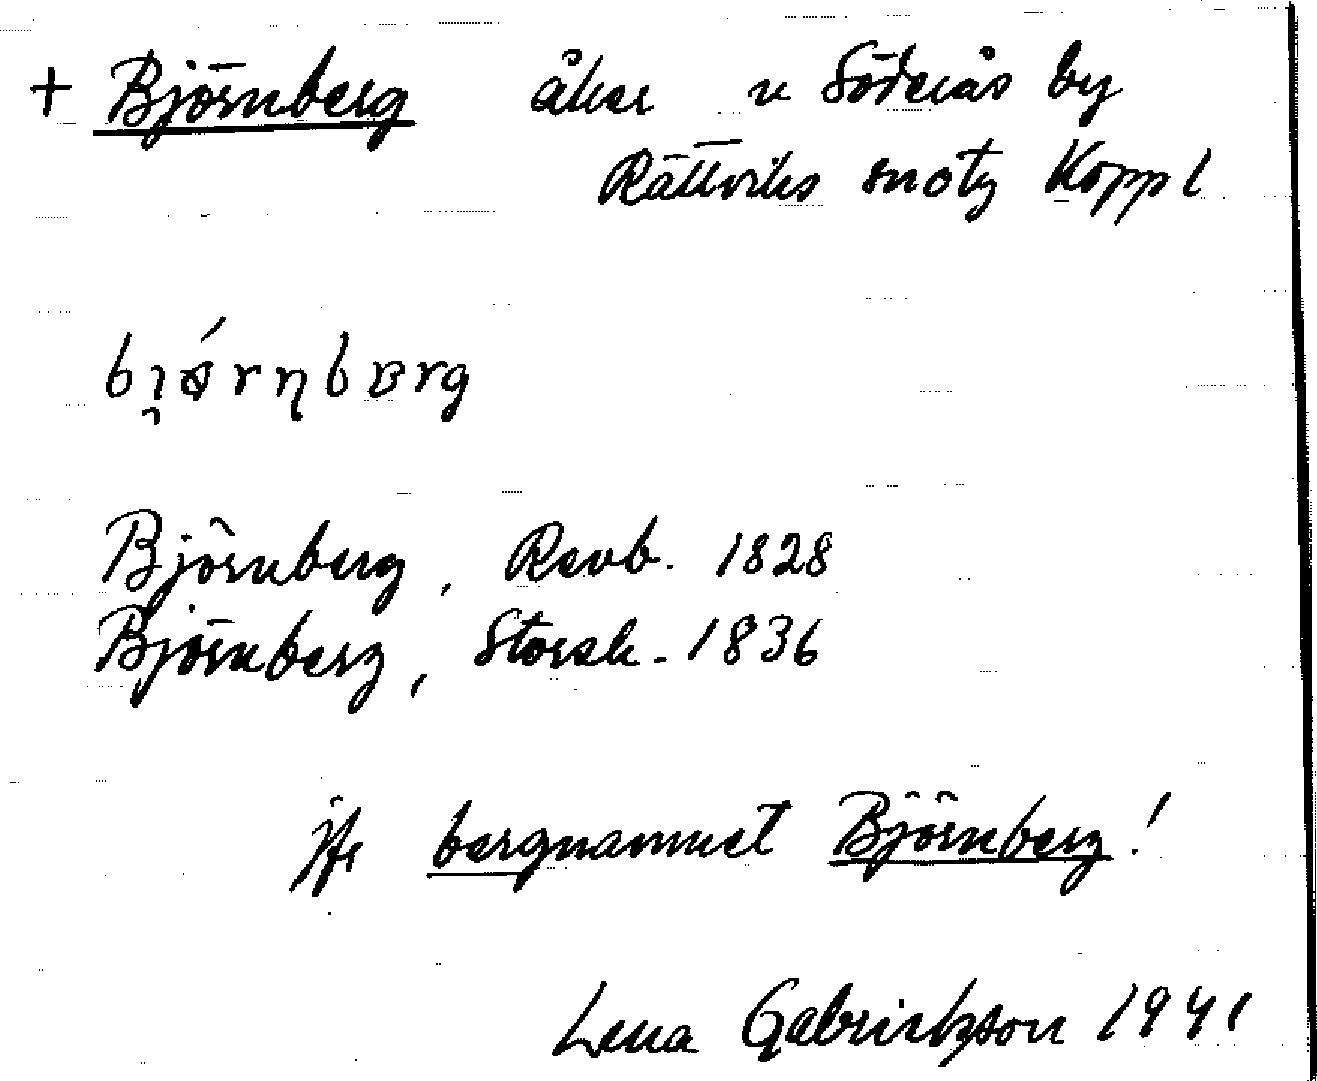 + Björnberg åker v Söderås by
Rättviks snötg Kopp l
bi̯ǿrɳbærg
Björnberg, Revb. 1828
Björnberg, Storsk. 1836
jfr bergnamnet Björnberg!
Lena Gabrielsson 1941